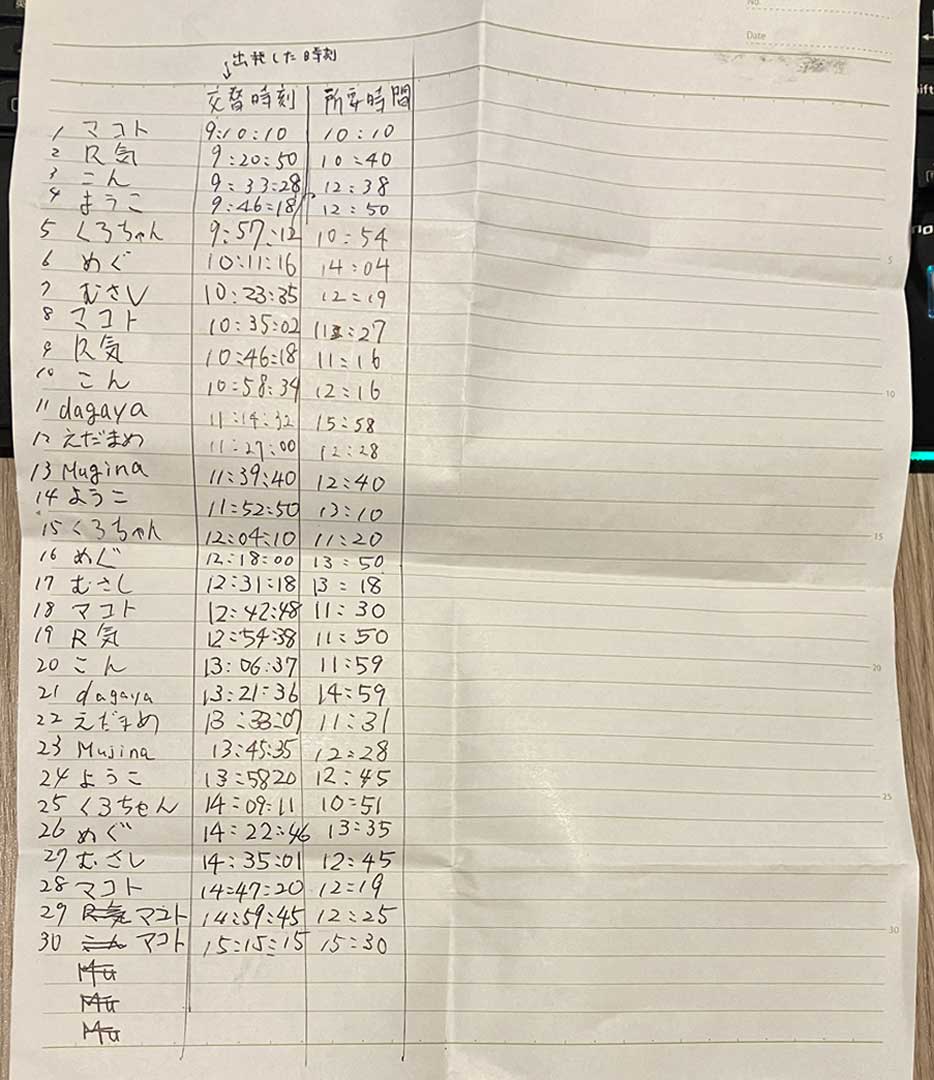 No.
Date
↓出発した時刻
交替時刻 所要時間
1 マコト 9:10:10 10:10
2 R気 9:20:50 10:40
3 こん 9:33:28 12:38
4 ようこ 9:46:18 12:50
5 くろちゃん 9:57:12 10:54
6 めぐ 10:11:16 14:04
7 むさし 10:23:35 12:19
8 マコト 10:35:02 11:27
9 R気 10:46:18 11:16
10 こん 10:58:34 12:16
11 dagaya 11:14:32 15:58
12 えだまめ 11:27:00 12:28
13 Mugina 11:39:40 12:40
14 ようこ 11:52:50 13:10
15 くろちゃん 12:04:10 11:20
16 めぐ 12:18:00 13:50
17 むさし 12:31:18 13:18
18 マコト 12:42:48 11:30
19 R気 12:54:38 11:50
20 こん 13:06:37 11:59
21 dagaya 13:21:36 14:59
22 えだまめ 13:33:07 11:31
23 Mujina 13:45:35 12:28
24 ようこ 13:5820 12:45
25 くろちゃん 14:09:11 10:51
26 めぐ 14:22:46 13:35
27 むさし 14:35:01 12:45
28 マコト 14:47:20 12:19
29 R気 マコト 14:59:45 12:25
30 こん マコト 15:15:15 15:30
5
10
15
20
25
30